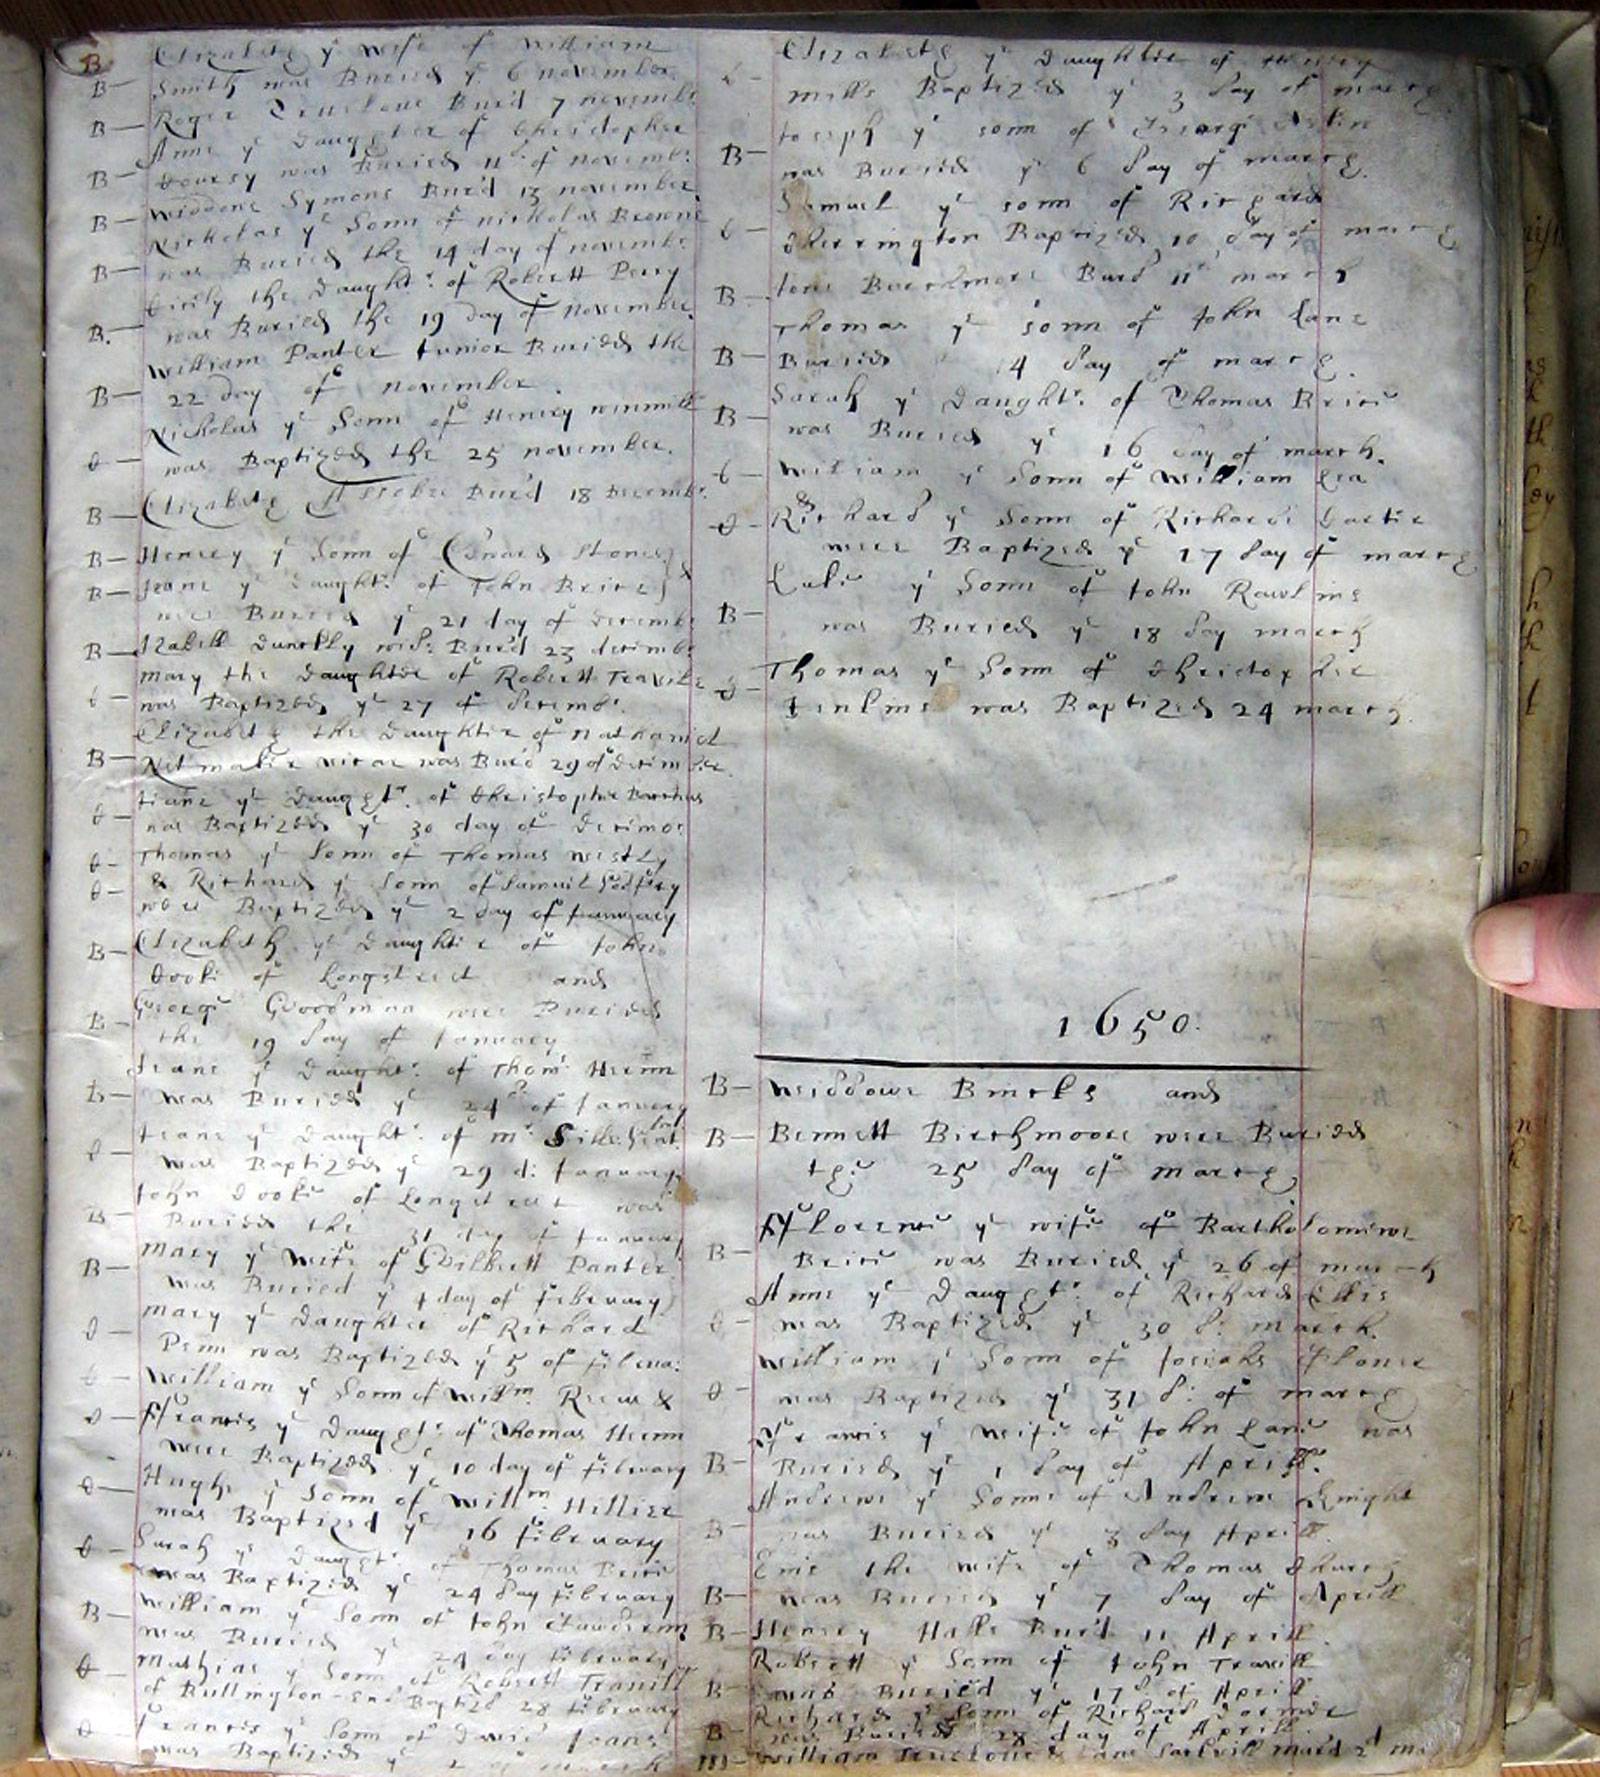 B Elizabeth yᵉ wife of William
B– Smith was Buried yᵉ 6 november
B– Roger Truelove Bur'd 7 novemb
Anne yᵉ Daughter of Christopher
B– was Buried 11ᵗʰ of novemb:
B– Widdowe Symons Bur'd 13 november
Nicholas yᵉ Sonn of nicholas Browne
B– was Buried the 14 day of novemb:
Cicily the Daughtʳ: of Robertt Perry
B. was Buried the 19 day of november
William Panter Junior Buried the
B– 22 day of november.
Nicholas yᵉ Sonn of Henery winmill
C– was Baptized the 25 november.
B– Elizabeth Bur'd 18 Decembʳ.
B– Henery yᵉ Sonn of Edward Stones }
B– Jeane yᵉ Daught: of John Brice } &
were Buried yᵉ 21 day of Decemb:
B– Izabell Duncklly wid: Bur'd 23 decemb:
mary the Daughter of Robertt Travile
C– was Baptized yᵉ 27 of decemb:
Elizabeth the Daughter of nathaniel
B– vicar was Bur'd 29 of december.
Jeane yᵉ Daughtʳ. of Christopher
C– was Baptized yᵉ 30 day of decemb:
C– Thomas yᵉ Sonn of Thomas westly
C– & Richard yᵉ Sonn of Samuel Godfrey
were Baptized yᵉ 2 day of January
B– Elizabeth yᵉ Daughter of John
Cooke of Longstreet and
B– George Goodman were Buried
the 19 day of January
Jeane yᵉ Daught: of Thom: Hernn
B– was Buried yᵉ 24 of January
Jeane yᵉ Daughtʳ. of mʳ.
C– was Baptized yᵉ 29 d: January
John Cooke of Longstreet was
B– Buried the 31 day of January
mary yᵉ Wife of Gilbertt Panter
B– was Buried yᵉ 4 day of february
mary yᵉ Daughter of Richard
C– Penn was Baptized yᵉ 5 of februa:
C– William yᵉ Sonn of Willᵐ. Reeve &
C– ffrancis yᵉ Daughtʳ: of Thomas Hernn
were Baptized yᵉ 10 day of february
C– Hughe yᵉ Sonn of Willᵐ. Hillier
was Baptized yᵉ 16 february
C– Sarah yᵉ Daughtʳ. of Thomas Brice
was Baptized yᵉ 24 day february
B– William yᵉ Sonn of John
was Buried yᵉ 24 day february
C– Mathias yᵉ Sonn of Robertt Travill
of Bullington-End Baptizd 28 february
C– Francis yᵉ Sonn of David Jeans
was Baptized yᵉ 2 of march
Elizabeth yᵉ Daughter of Henery
C– mills Baptized yᵉ 3 day of march
Joseph yᵉ sonn of George
B– was Buried yᵉ 6 day of march.
Samuel yᵉ sonn of Richard
C– Cherrington Baptized 10 day of march
B– Jone Burchmore Burd 11ᵗʰ march
Thomas yᵉ sonn of John Lane
B– Buried 14 day of march.
Sarah yᵉ Daughtʳ. of Thomas Brice
B– was Buried yᵉ 16 day of march.
C– William yᵉ Sonn of William Lea
&
C– Richard yᵉ Sonn of Richard Carter
were Baptized yᵉ 17 day of march
Luke yᵉ Sonn of John Rawlins
B– was Buried yᵉ 18 day march
Thomas yᵉ Sonn of Christopher
C– Jenkins was Baptized 24 march.
1650.
B– Widdowe Bincks and
B– Bennett Birchmoore were Buried
the 25 day of march
fflorence yᵉ wife of Bartholomewe
B– Brice was Buried yᵉ 26 of march
Anne yᵉ Daughtʳ: of Richard Ellis
C– was Baptized yᵉ 30 d: march.
William yᵉ Sonn of Josiahs
C– was Baptized yᵉ 31 d: of march
ffrancis yᵉ wife of John Lane was
B– Buried yᵉ 1 day of Aprill.
Andrewe yᵉ Sonne of Andrew Knight
B– was Buried yᵉ 3 day Aprill.
the wife of Thomas Church
B– was Buried yᵉ 7 day of Aprill
B– Henery Halls Bur'd 11 Aprill.
Robertt yᵉ Sonn of John Travill
B– was Buried yᵉ 17 d: of Aprill
Richard yᵉ Sonn of Richard Dormer
B– was Buried 28 day of Aprill
m– William Truelove & mar'd 2ᵈ